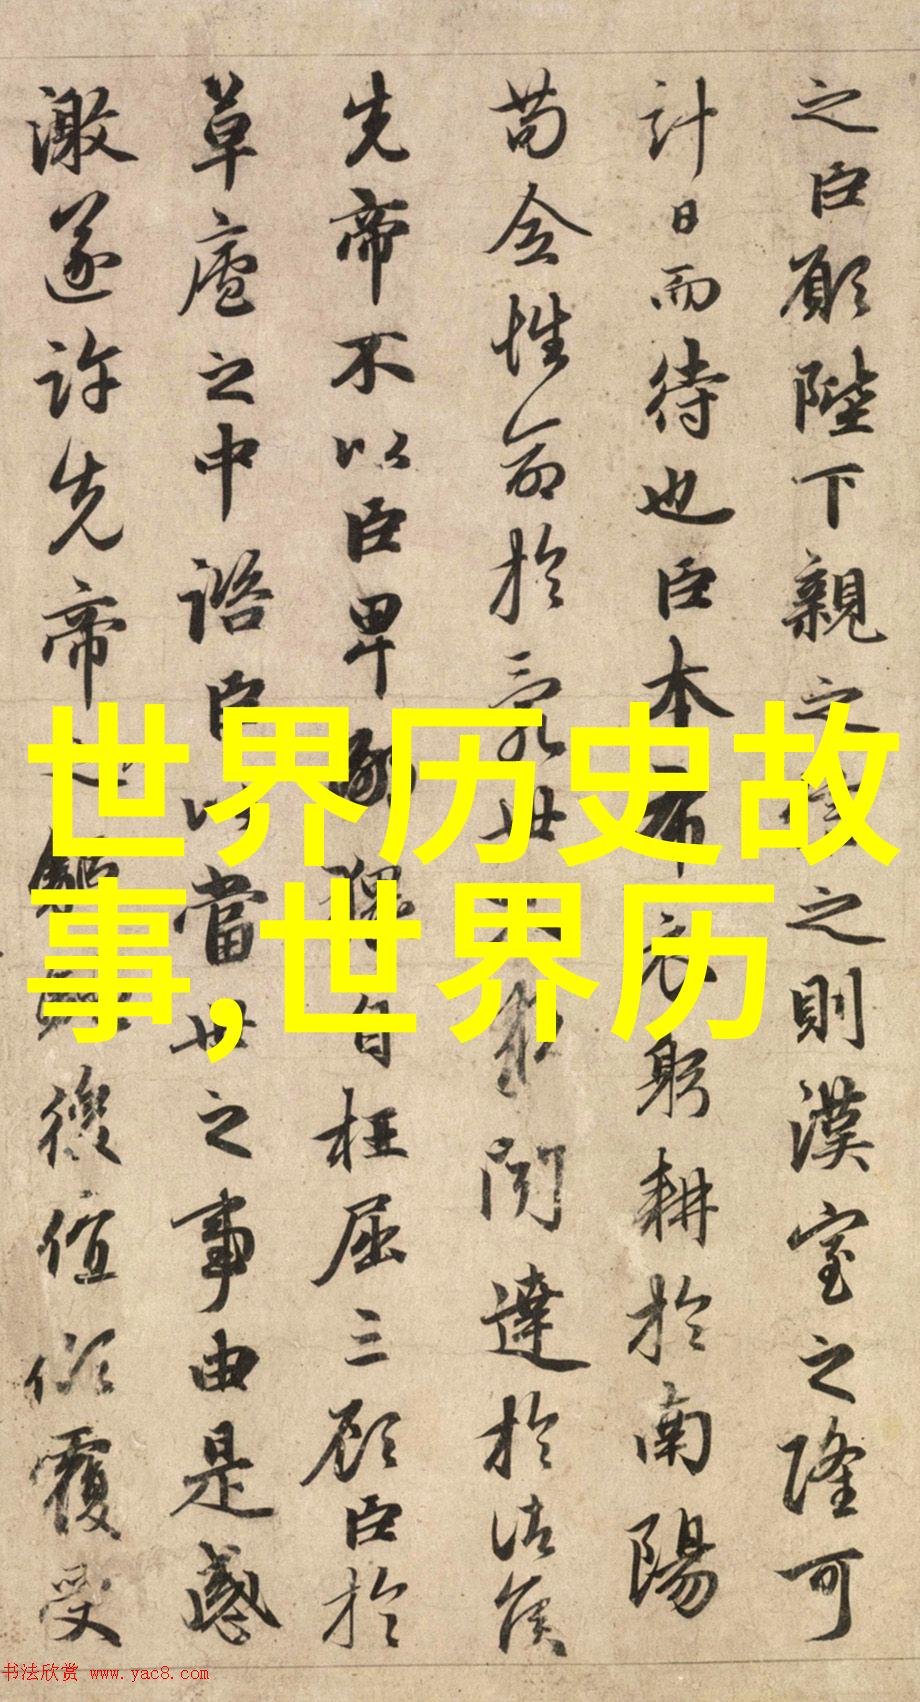 之臣願陛下親之信之則漢室之隆可
計日而待也臣本布衣躬耕於南陽
苟全性命於亂世不求聞達於諸侯
先帝不以臣卑鄙猥自枉屈三顧臣於
草廬之中諮臣以當世之事由是感
激遂許先帝以驅馳後值傾覆受
世界历史故
事,世界历
书法欣赏 www.yac8.com